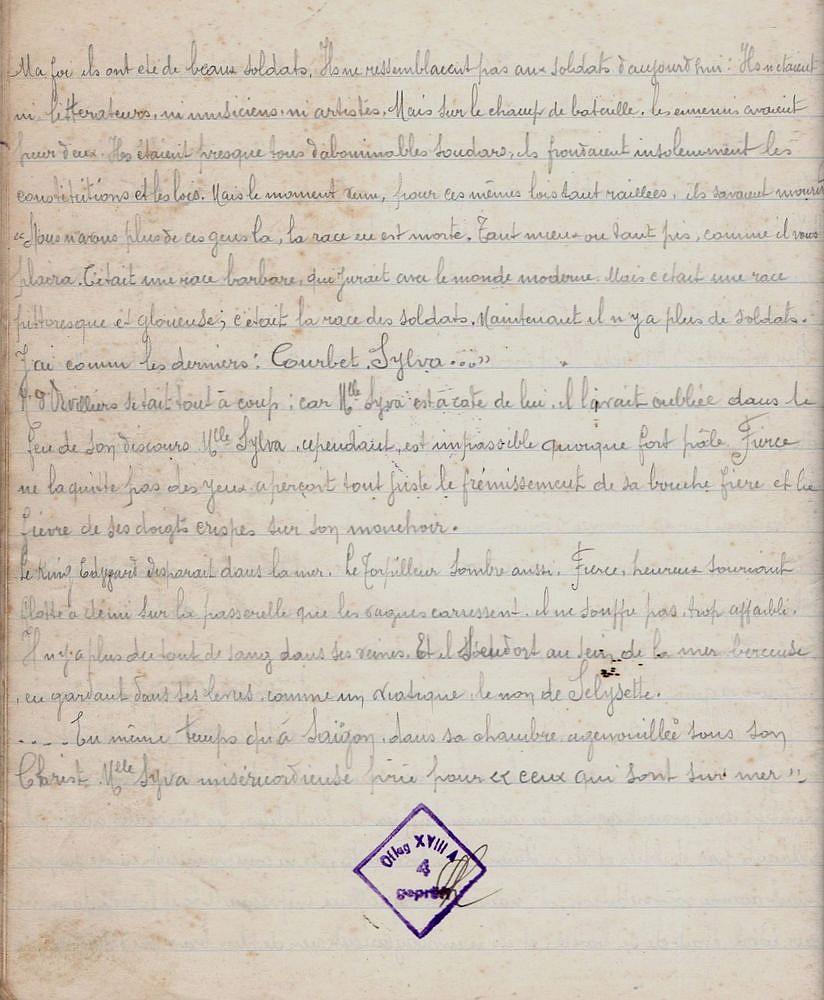 Ma foi ils ont été de beaux soldats. Ils ne ressemblaient pas aux soldats d'aujourd'hui: Ils n'étaient
ni litterateurs, ni musiciens, ni artistes. Mais sur le champ de bataille, les ennemis avaient
peur d'eux. Ils étaient presque tous d'abominables soudars, ils frondaient insolemment les
constitutions et les lois. Mais le moment venu, pour ces mêmes lois tant raillées, ils savaient mourir
"Nous n'avons plus de ces gens la, la race en est morte. Tant mieux ou tant pis, comme il vous
plaira. C'était une race barbare, qui jurait avec le monde moderne. Mais c'était une race
pittoresque et glorieuse; c'était la race des soldats. Maintenant il n'y a plus de soldats.
J'ai connu les derniers: Courbet, Sylva ....."
M. d'Orvilliers se tait tout à coup; car Mlle Sylva est à coté de lui, il l'avait oubliée dans le
feu de son discours Mlle Sylva, cependant, est impassible quoique fort pâle. Fierce
ne la quitte pas des yeux aperçoit tout juste le frémissement de sa bouche fière et la
fièvre de ses doigts crispés sur son mouchoir.
Le King Edward disparait dans la mer. Le Torpilleur sombre aussi. Fierce, heureux souriant
flotte à demi sur la passerelle que les vagues caressent. il ne souffre pas, trop affaibli.
Il n'y a plus du tout de sang dans ses veines. Et il s'endort au sein de la mer berceuse
, en gardant dans ses levres, comme un viatique, le nom de Selysette.
..... En même temps qu'à Saïgon, dans sa chambre, agenouillée sous son
Christ Mlle Sylva miséricordieuse prie pour "ceux qui sont sur mer"
Oflag XVIII A
4
geprüft